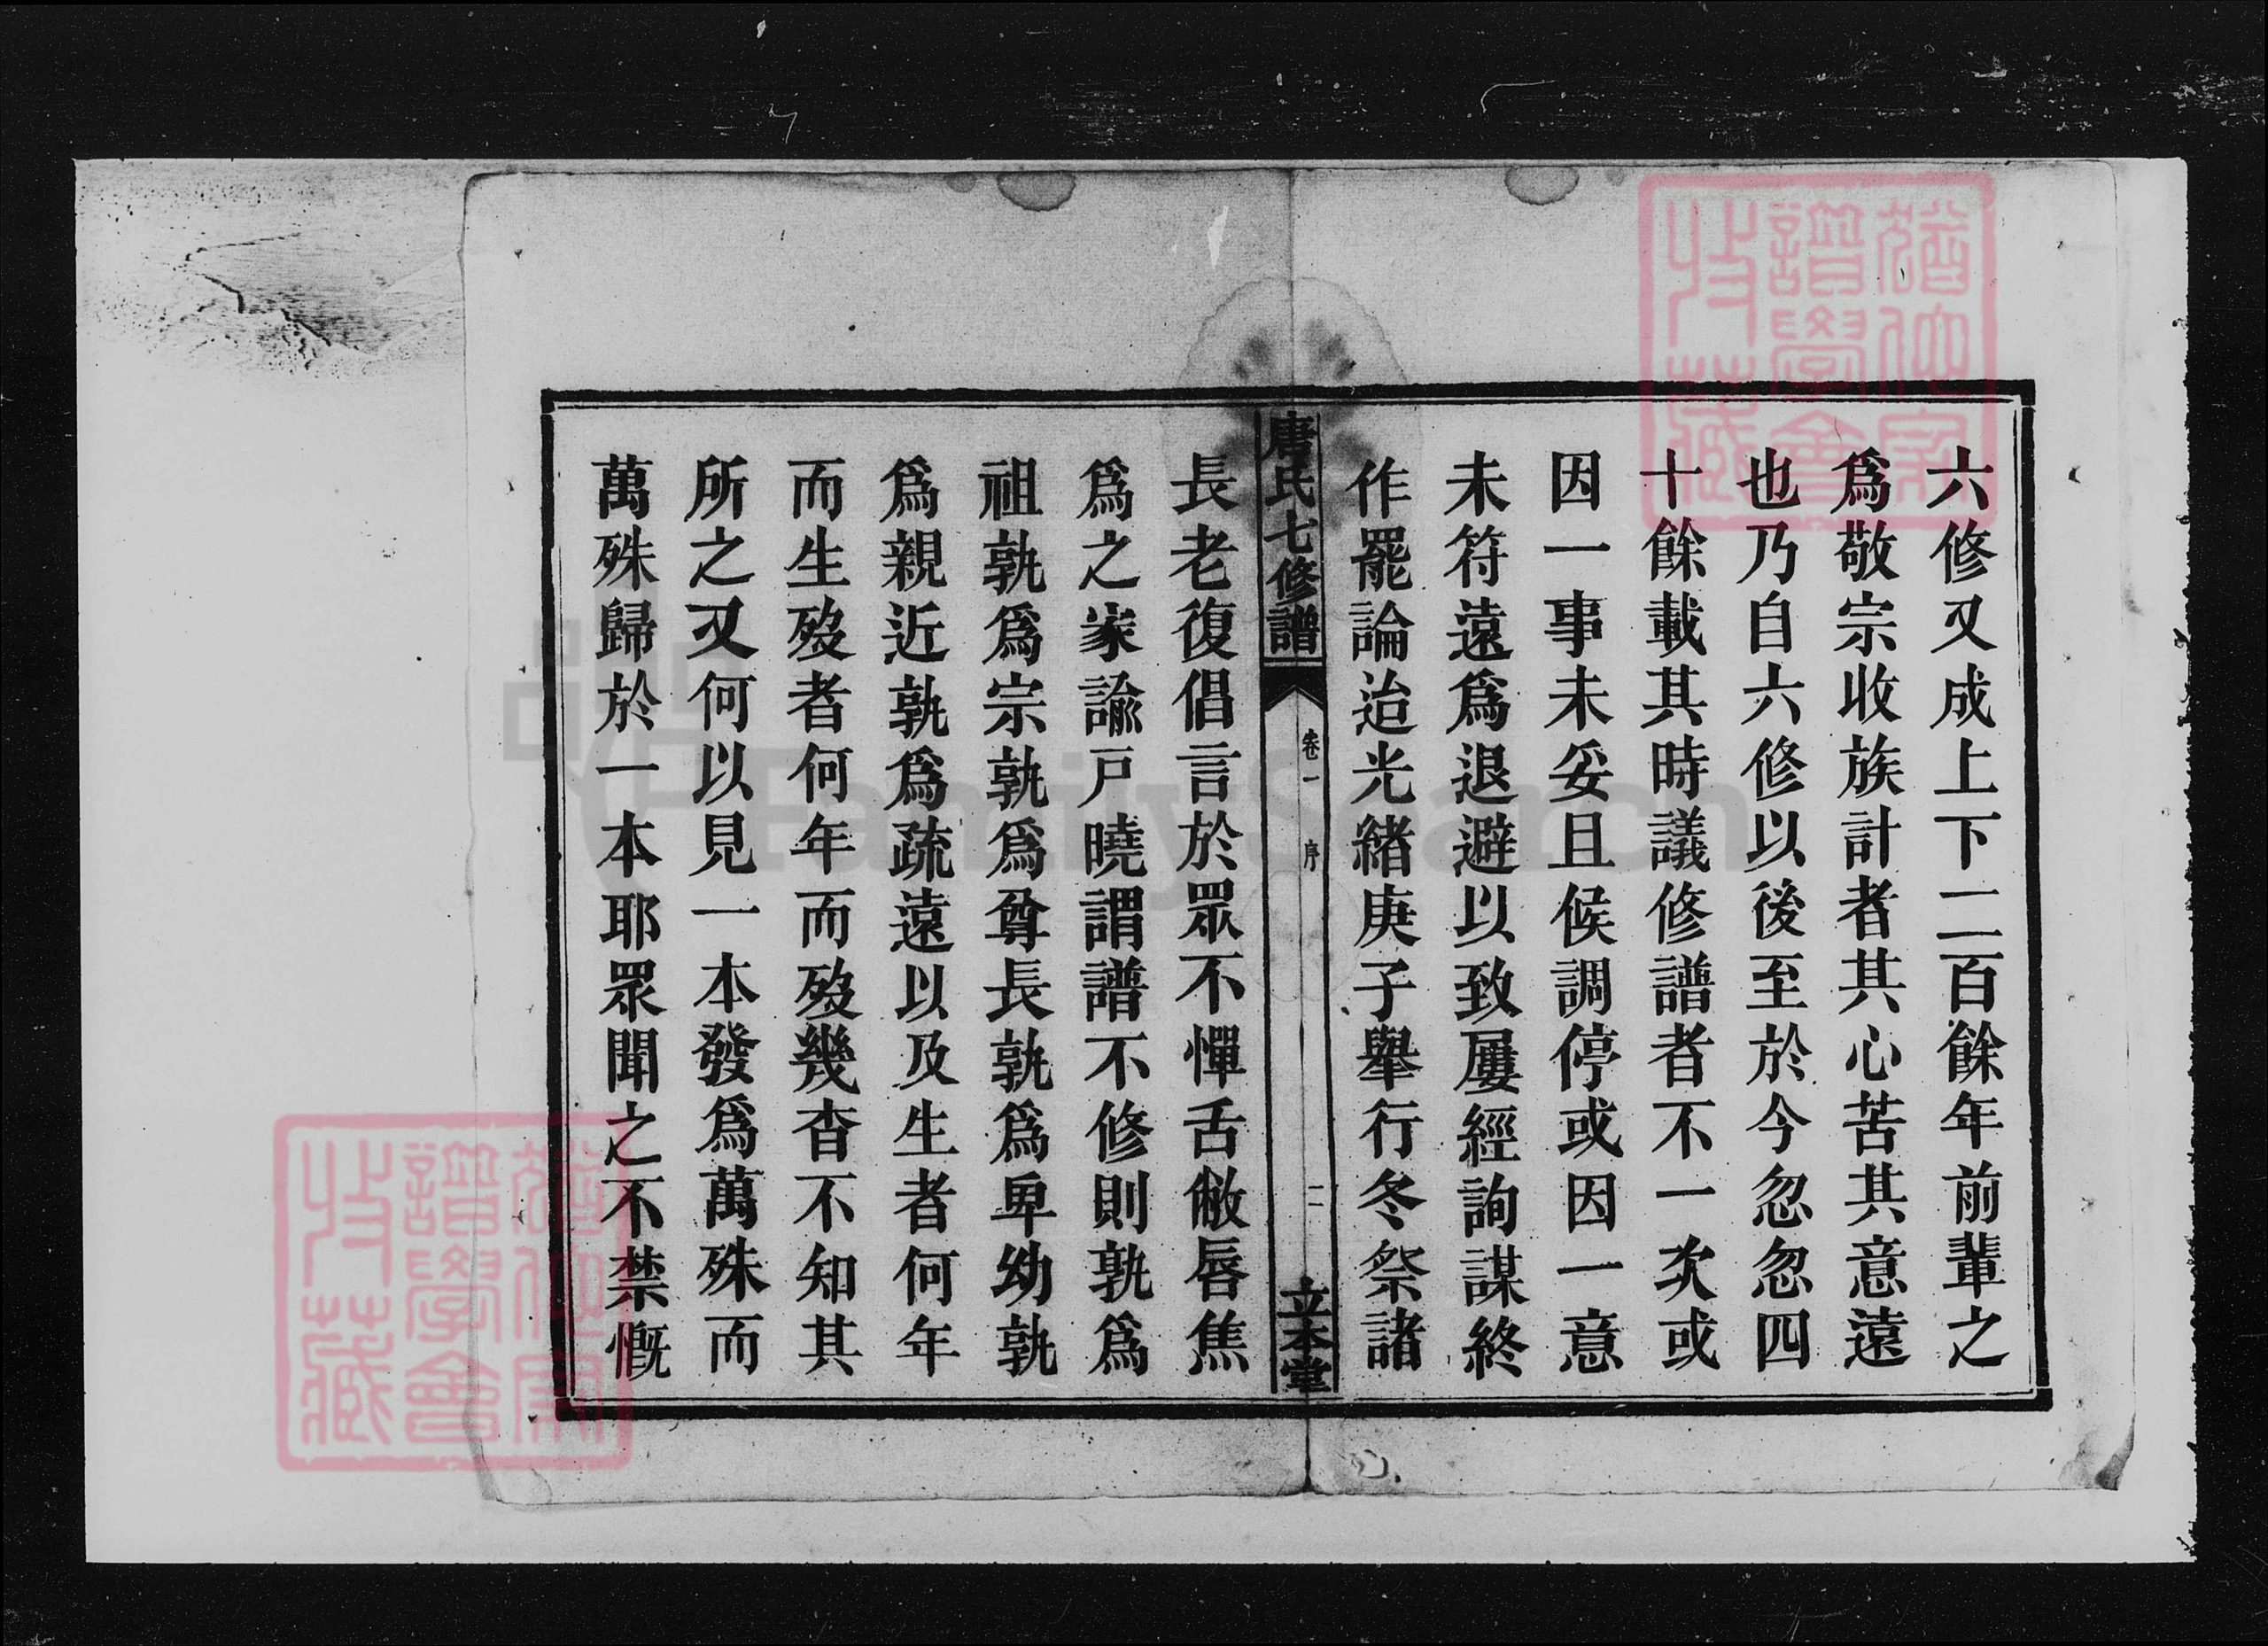 六修又成上下二百餘年前輩之
爲敬宗收族計者其心苦其意遠
也乃自六修以後至於今忽忽四
十餘載其時議修譜者不一次或
因一事未妥且候調停或因一意
未符遠爲退避以致屢經詢謀終
作罷論迨光緒庚子舉行冬祭諸
唐氏七修譜
卷一
序
二
立本堂
長老復倡言於眾不憚舌敝唇焦
爲之家諭戸曉謂譜不修則孰爲
祖孰爲宗孰爲尊長孰爲卑幼孰
爲親近孰爲疏遠以及生者何年
而生歿者何年而歿幾杳不知其
所之又何以見一本發爲萬殊而
萬殊歸於一本耶眾聞之不禁慨
FamilySearch
譜學會
收藏
譜學會
收藏